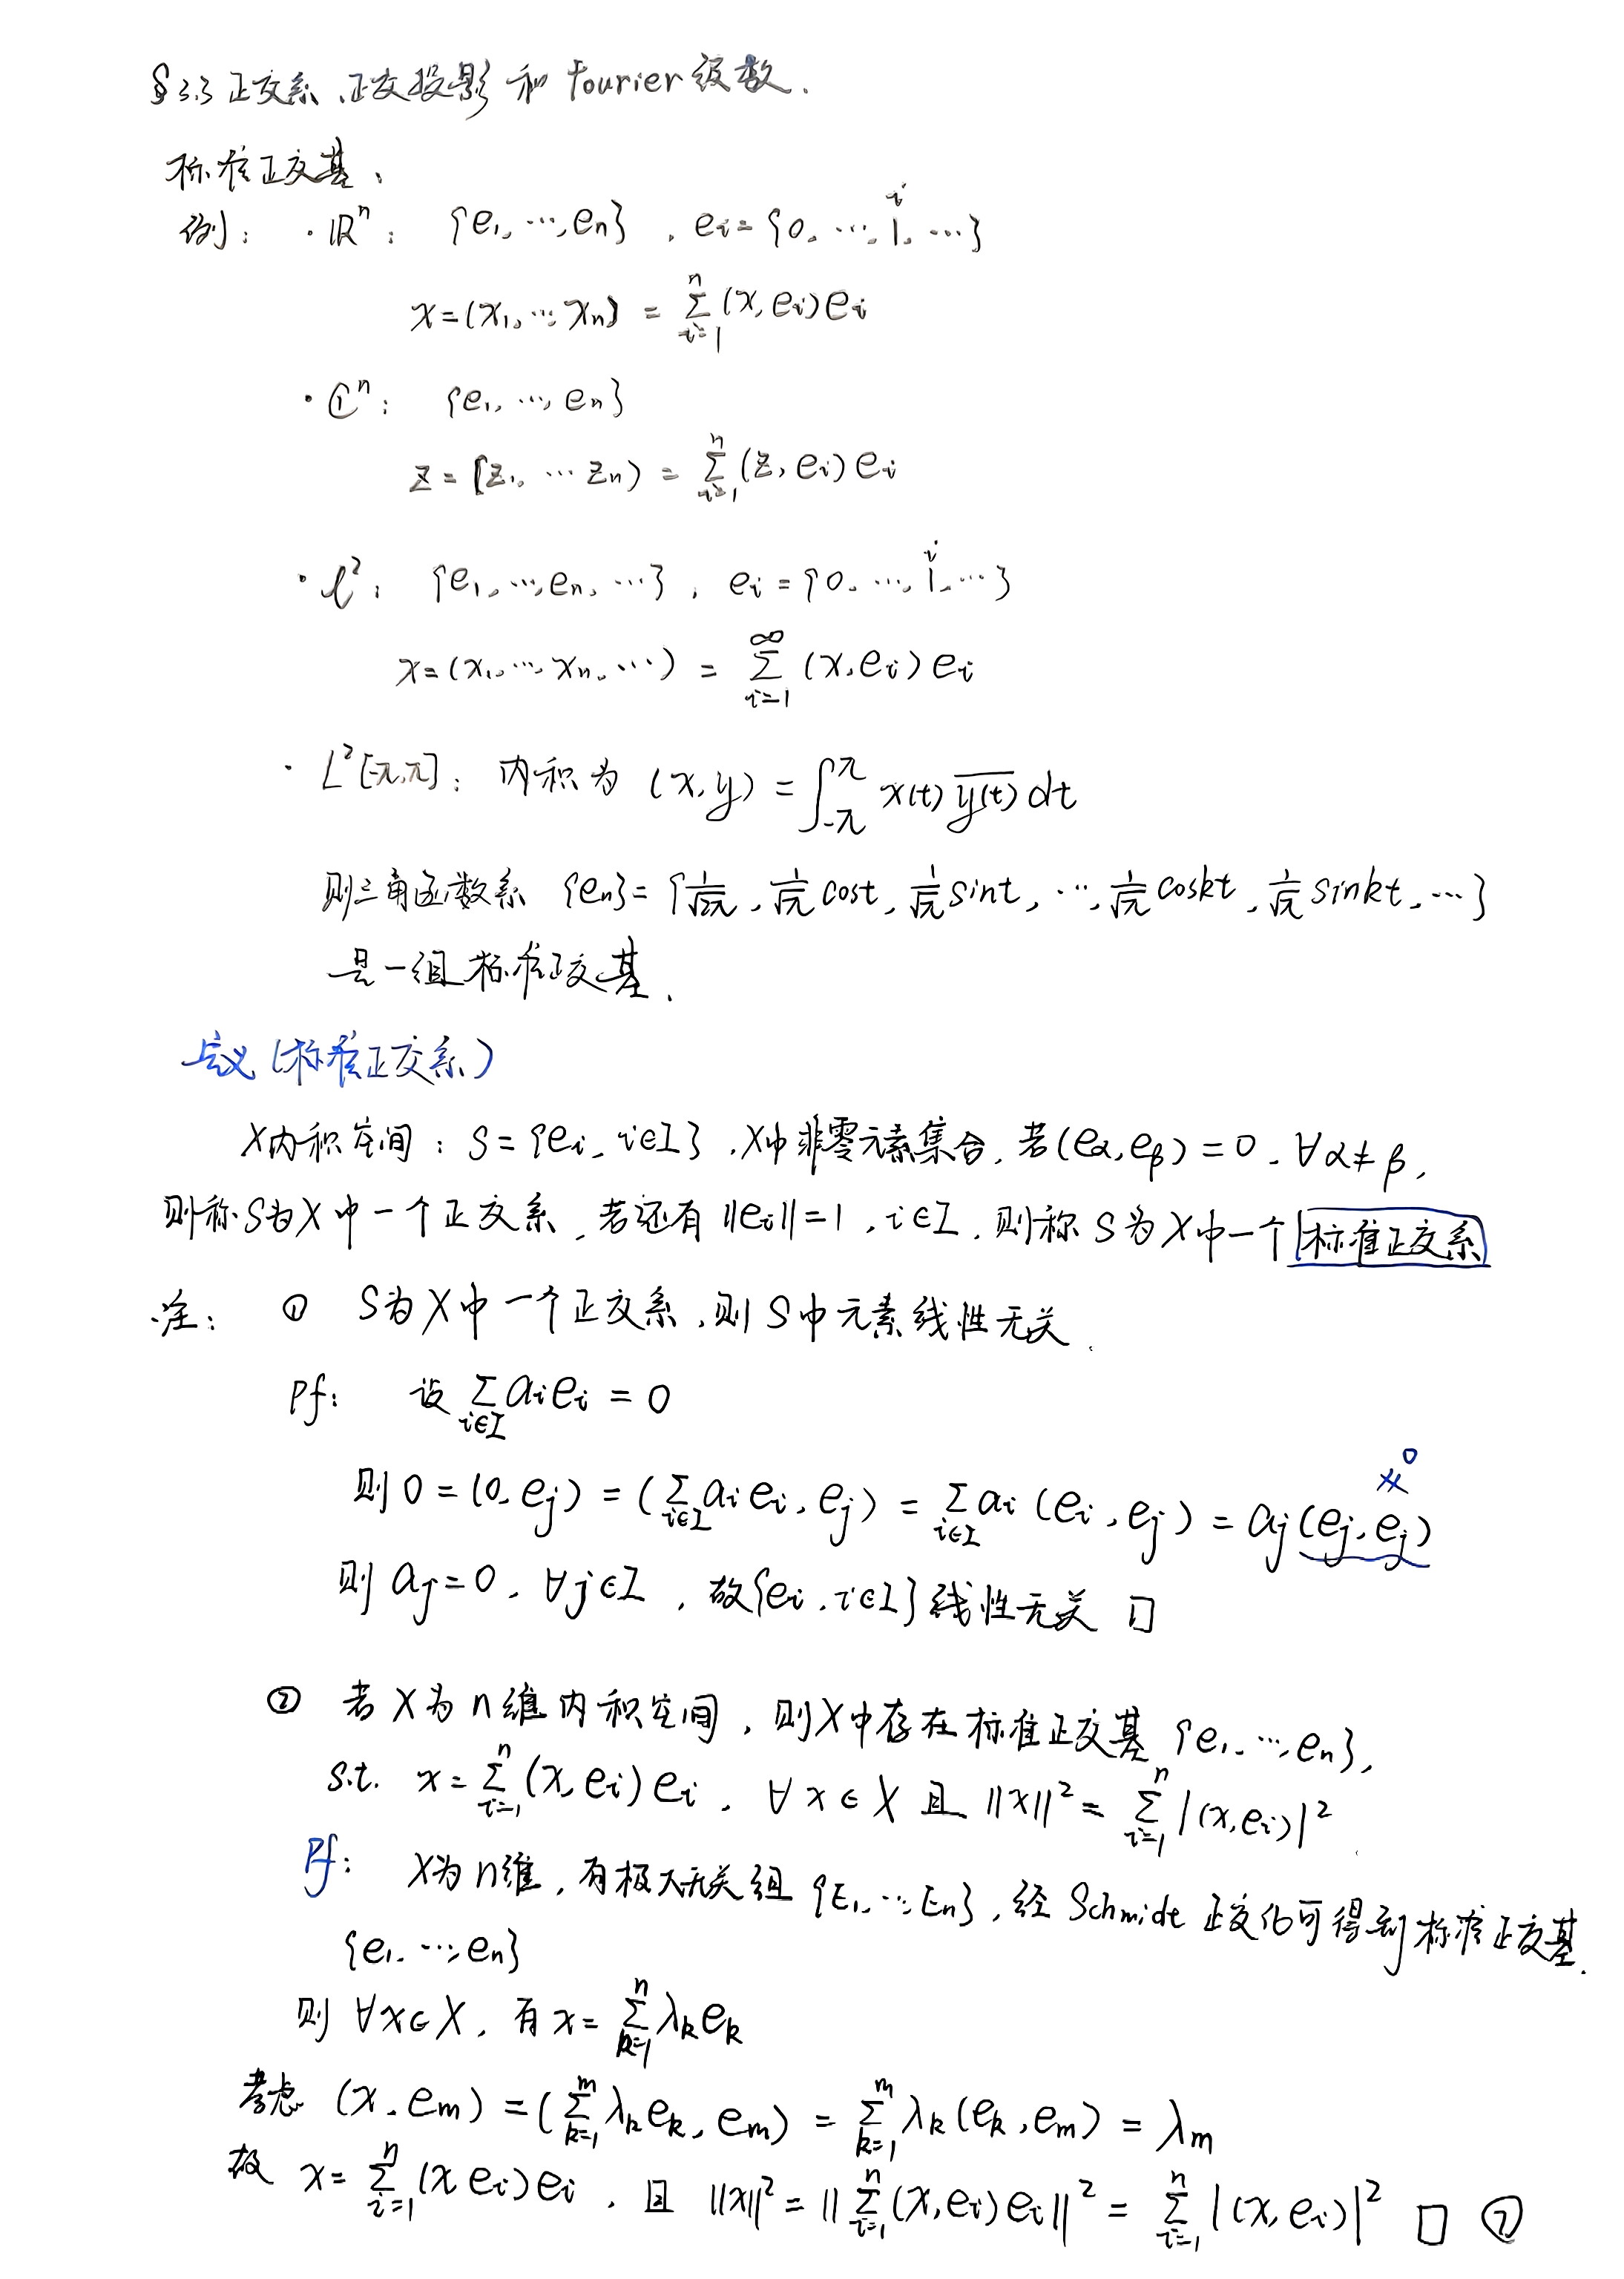 §3.3 正交系、正交投影 和 Fourier 级数.
标准正交基、
例: · ℝⁿ: {e₁, ⋯, eₙ}, eᵢ = {0, ⋯, 1(i), ⋯}
x = (x₁, ⋯, xₙ) = ∑_{i=1}^{n} (x, eᵢ)eᵢ
· ℂⁿ: {e₁, ⋯, eₙ}
z = (z₁, ⋯ zₙ) = ∑_{i=1}^{n} (z, eᵢ)eᵢ
· ℓ²: {e₁, ⋯, eₙ, ⋯}, eᵢ = {0, ⋯, 1(i), ⋯}
x = (x₁, ⋯, xₙ, ⋯) = ∑_{i=1}^{∞} (x, eᵢ)eᵢ
· L²[-π,π]: 内积为 (x, y) = ∫_{-π}^{π} x(t) \overline{y(t)} dt
则三角函数系 {eₙ} = {1/√(2π), 1/√π cost, 1/√π sint, ⋯, 1/√π coskt, 1/√π sinkt, ⋯}
是一组标准正交基.
定义 (标准正交系)
X内积空间: S = {eᵢ, i∈I}, X中非零元素集合, 若(e_α, e_β) = 0, ∀α≠β,
则称S为X中一个正交系, 若还有 ‖eᵢ‖=1, i∈I, 则称 S 为 X中一个标准正交系
注: ① S为X中一个正交系, 则 S中元素线性无关.
Pf: 设 ∑_{i∈I} aᵢeᵢ = 0
则 0 = (0, eⱼ) = (∑_{i∈I} aᵢeᵢ, eⱼ) = ∑_{i∈I} aᵢ(eᵢ, eⱼ) = aⱼ(eⱼ, eⱼ) ≠0
则 aⱼ=0, ∀j∈I, 故{eᵢ, i∈I}线性无关 □
② 若 X为 n维内积空间, 则X中存在标准正交基 {e₁, ⋯, eₙ},
s.t. x = ∑_{i=1}^{n} (x, eᵢ)eᵢ, ∀x∈X 且 ‖x‖² = ∑_{i=1}^{n} |(x, eᵢ)|².
Pf: X为 n维, 有极大无关组 {E₁, ⋯, Eₙ}, 经 Schmidt 正交化可得到标准正交基.
{e₁, ⋯, eₙ}
则 ∀x∈X, 有 x = ∑_{k=1}^{n} λₖeₖ
考虑 (x, eₘ) = (∑_{k=1}^{m} λₖeₖ, eₘ) = ∑_{k=1}^{m} λₖ(eₖ, eₘ) = λₘ
故 x = ∑_{i=1}^{n} (x eᵢ)eᵢ, 且 ‖x‖² = ‖∑_{i=1}^{n} (x, eᵢ)eᵢ‖² = ∑_{i=1}^{n} |(x, eᵢ)|² □ ⑦